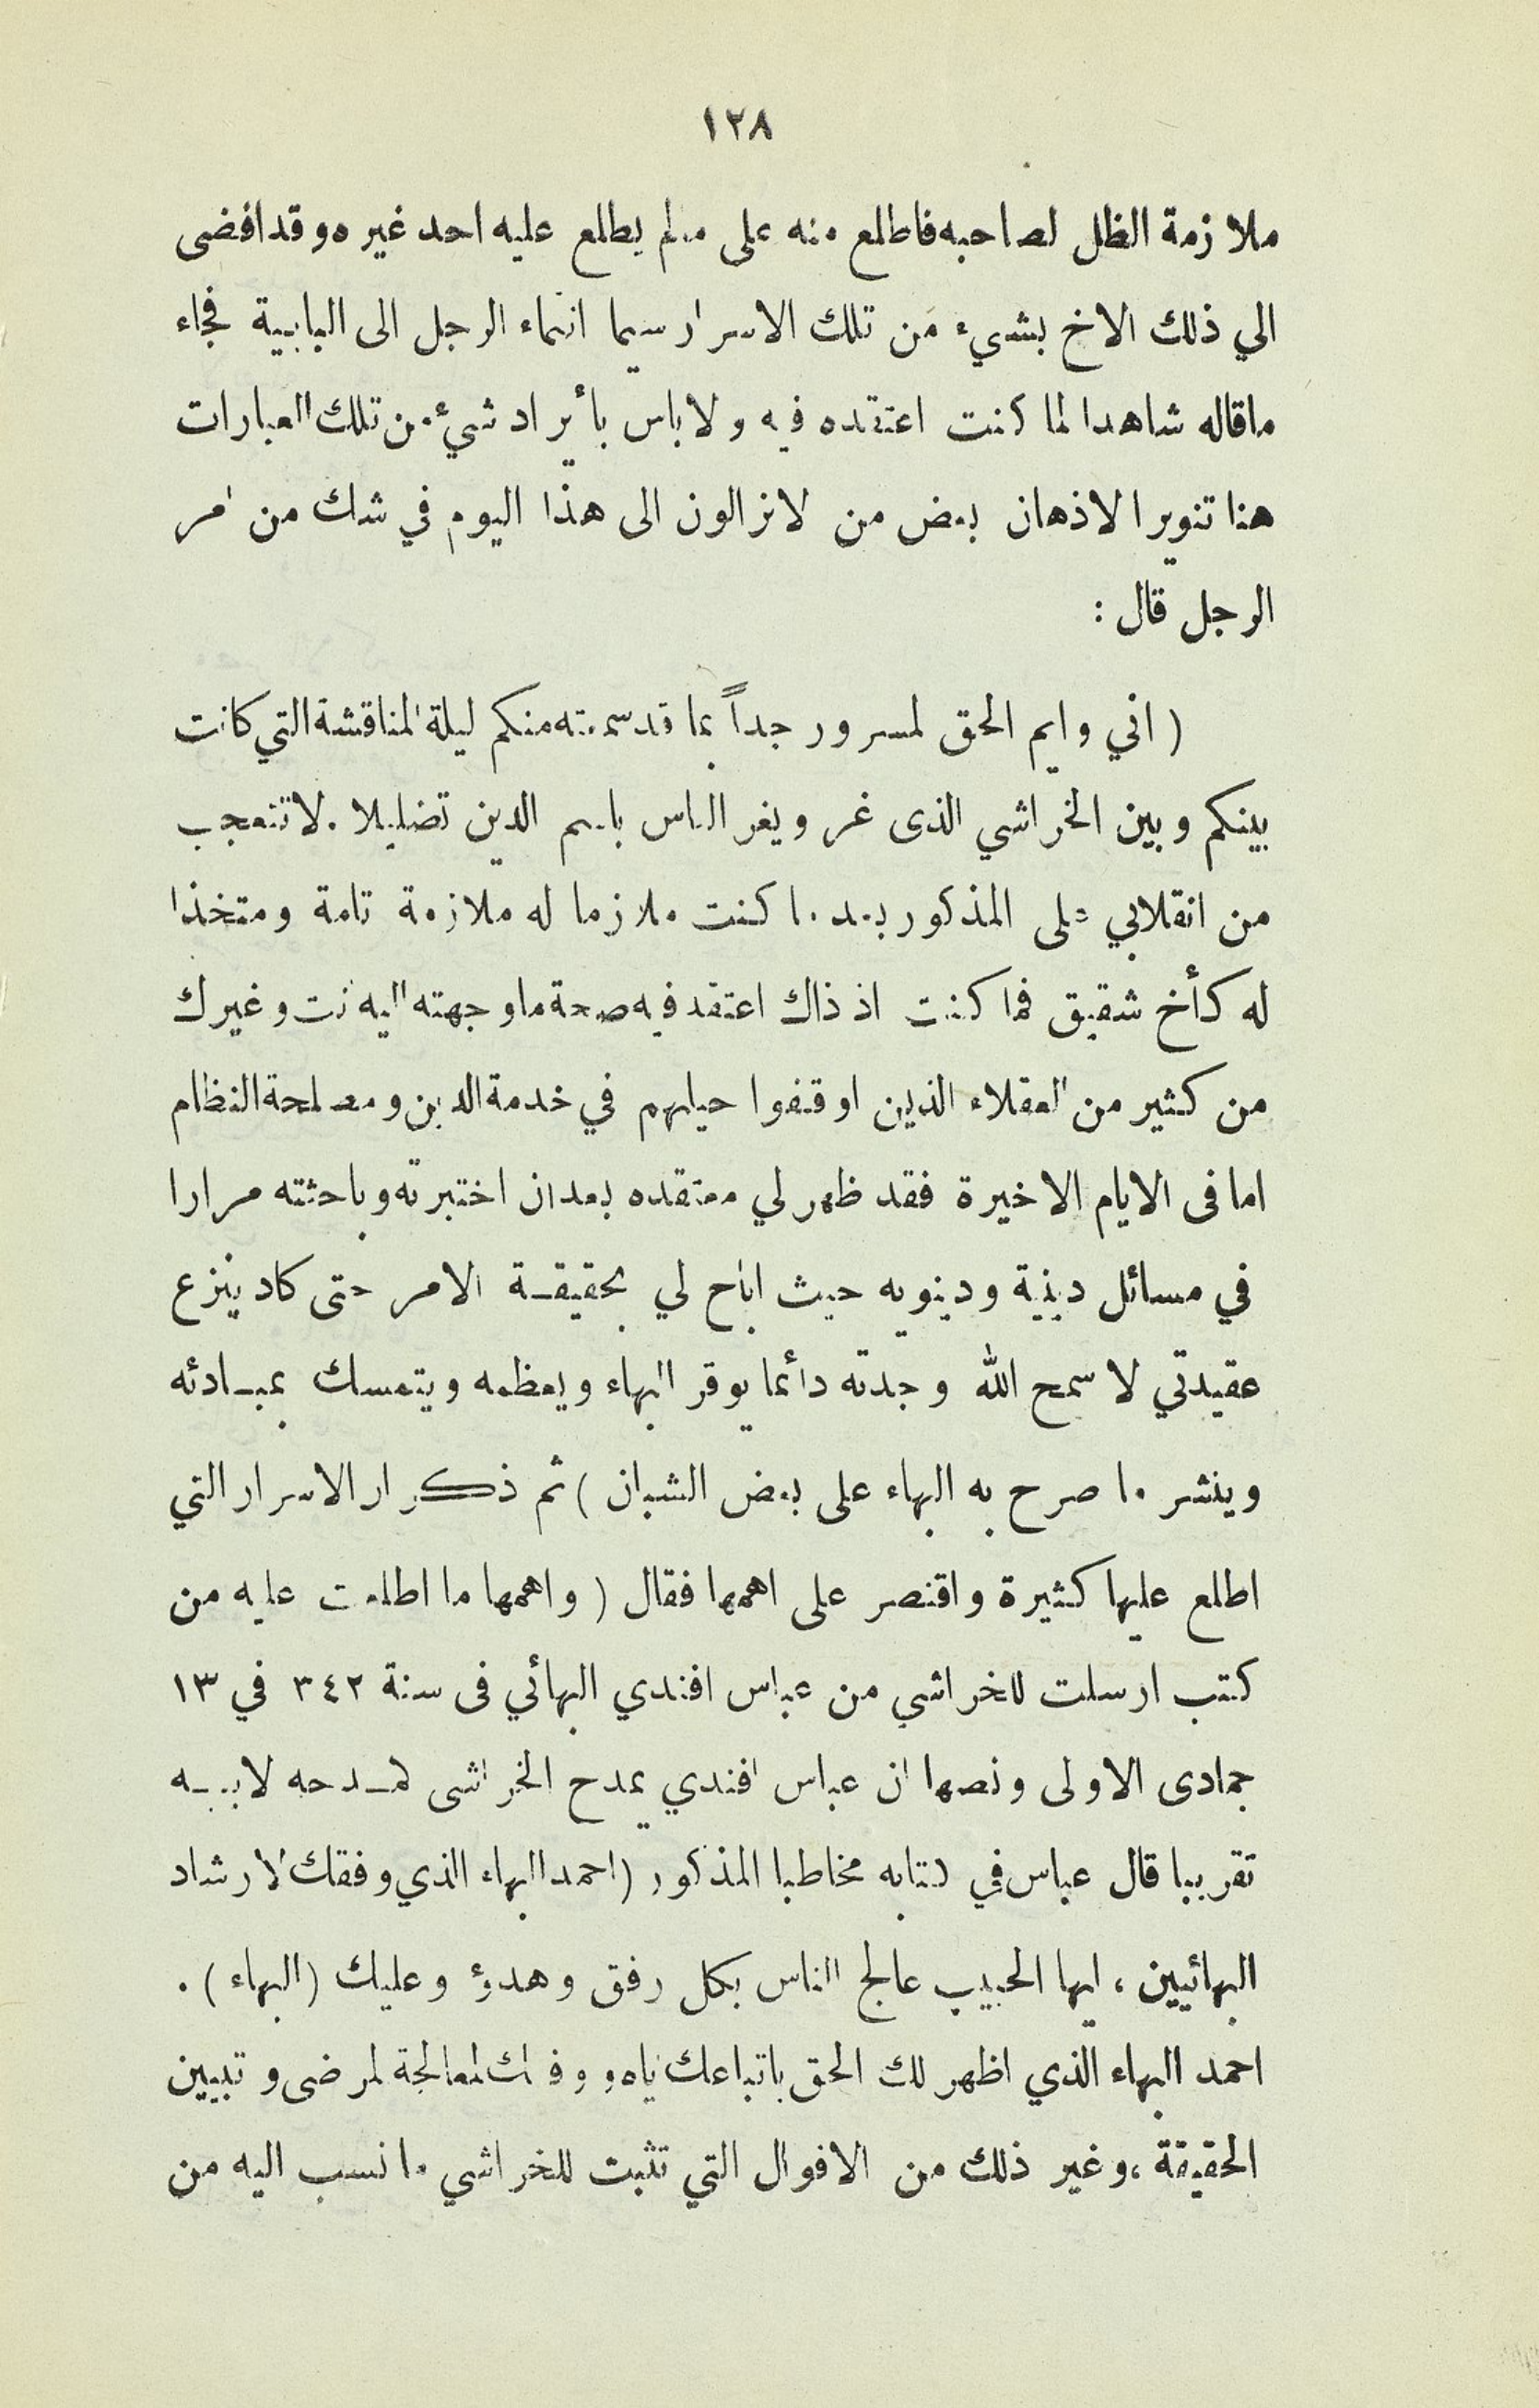 ١٢٨
ملازمة الظل لصاحبه فاطلع منه على مالم يطلع عليه احد غيره وقد افضى
الي ذلك الاخ بشيء من تلك الاسرار سيما انتماء الرجل الى البابية فجاء
ماقاله شاهدا لما كنت اعتقده فيه ولا باس بأيراد شيء من تلك العبارات
هنا تنويرا لاذهان بعض من لانزالون الى هذا اليوم في شك من امر
الرجل قال :
( اني وايم الحق لمسرور جداً بما قد سمعته منكم ليلة المناقشة التي كانت
بينكم وبين الخراشي الذى غر ويغر الناس باسم الدين تضليلا . لا تتعجب
من انقلابي على المذكور بعد ما كنت ملازما له ملازمة تامة ومتخذا
له كأخ شقيق فما كنت اذ ذاك اعتقد فيه صحة ماوجهته اليه انت وغيرك
من كثير من العقلاء الذين اوقفوا حياتهم في خدمة الدين ومصلحة النظام
اما فى الايام الاخيرة فقد ظهر لي معتقده بعد ان اختبرته وباحثته مرارا
في مسائل دينية ودينويه حيث اباح لي بحقيقة الامر حتى كاد ينزع
عقيدتي لا سمح الله وجدته دائما يوقر البهاء ويعظمه ويتمسك بمبادئه
وينشر ما صرح به البهاء على بعض الشبان ) ثم ذكر ار الاسرار التي
اطلع عليها كثيرة واقتصر على اهمها فقال ( واهمها ما اطلعت عليه من
كتب ارسلت للخراشي من عباس افندي البهائي فى سنة ٣٤٢ في ١٣
جمادى الاولى ونصها ان عباس افندي يمدح الخراشى كمدحه لابيه
تقريبا قال عباس في كتابه مخاطبا المذكور (احمد البهاء الذي وفقك لارشاد
البهائيين ، ايها الحبيب عالج الناس بكل رفق وهدؤ وعليك (البهاء ) .
احمد البهاء الذي اظهر لك الحق باتباعك اياه ووفقك لمعالجة المرضى وتبيين
الحقيقة ، وغير ذلك من الاقوال التي تثبت للخراشي ما نسب اليه من